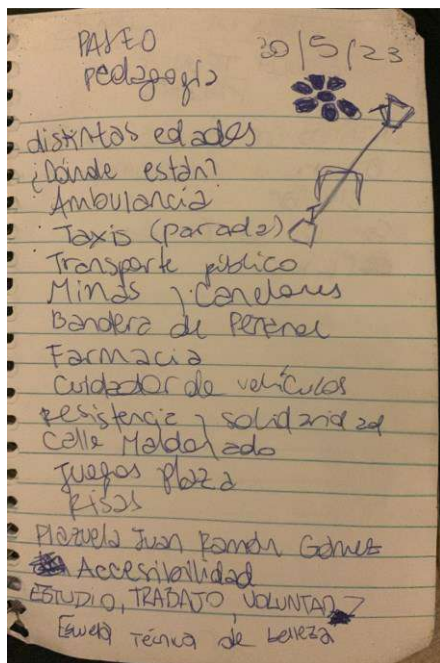 PASEO
pedagogía
30/5/23
distintas edades
¿Dónde están?
Ambulancia
Taxis (parada)
Transporte público
Minas y Canelones
Bandera de Peñarol
Farmacia
Cuidador de vehículos
Resistencia y solidaridad
Calle Maldonado
Juegos plaza
Risas
Plazuela Juan Ramón Gómez
Accesibilidad
ESTUDIO, TRABAJO, VOLUNTAD
Escuela Técnica de belleza